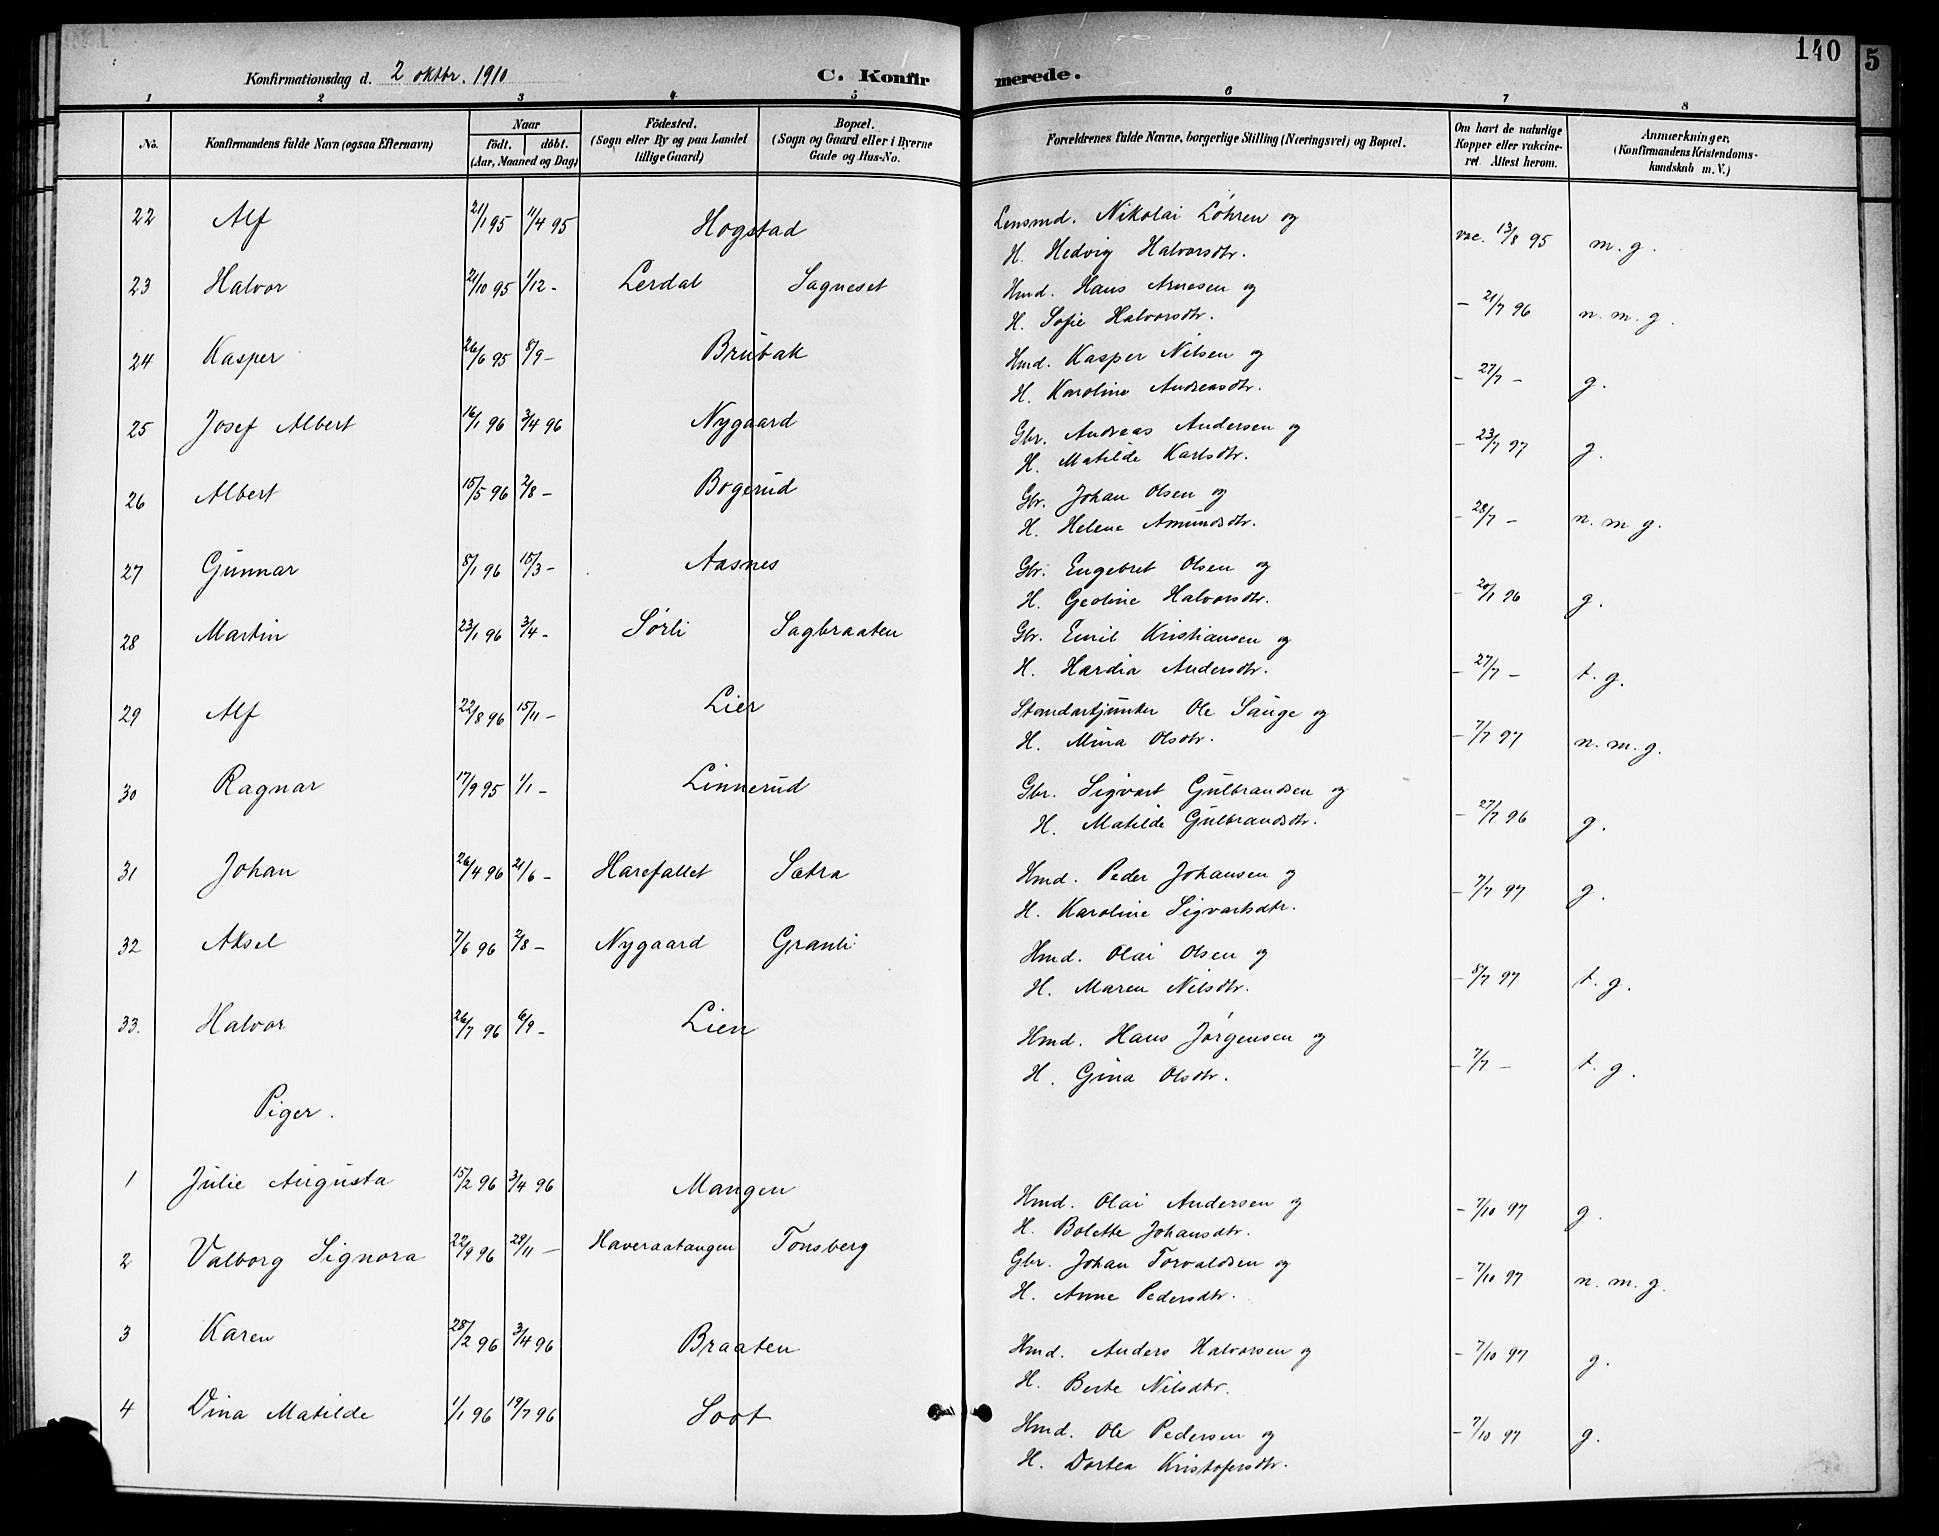 140
5
Konfirmationsdag d. 2 oktbr. 1910
C. Konfir merede.
1 2 3 4 5 6 7 8
No.
Konfirmandens fulde Navn (ogsaa Efternavn)
Naar
födt. döbt.
(Aar, Maaned og Dag)
Födested.
(Sogn eller By og paa Landet
tillige Gaard)
Bopæl.
(Sogn og Gaard eller i Byerne
Gade og Hus-No.
Forældrenes fulde Navne, borgerlige Stilling (Næringsvei) og Bopæl.
Om havt de naturlige
Kopper eller vakcine-
ret. Attest herom.
Anmærkninger,
(Konfirmandens Kristendoms-
kundskab m. V.)
22 Alf 21/1 95 11/4 95 Hogstad Lensmd. Nikolai Löhren og
H. Hedvig Halvorsdtr. vac. 13/8 95 m. g.
23 Halvor 21/10 95 1/12 - Lerdal Sagneset Hmd. Hans Arnesen og
H. Sofie Halvorsdtr. - 21/7 96 n. m. g.
24 Kasper 26/6 95 8/9 - Brubak Hmd. Kasper Nilsen og
H. Karoline Andreasdtr. - 27/7 - g.
25 Josef Albert 16/1 96 3/4 96 Nygaard Gbr. Andreas Andersen og
H. Matilde Karlsdtr. - 23/7 97 g.
26 Albert 15/5 96 2/8 - Bogerud Gbr. Johan Olsen og
H. Helene Amundsdtr. - 28/7 - n. m g.
27 Gunnar 8/1 96 15/3 - Aasnes Gbr. Engebret Olsen og
H. Geoline Halvorsdtr. - 20/1 96 g.
28 Martin 23/1 96 3/4 - Sørli Sagbraaten Gbr. Emil Kristiansen og
H. Hardia Andersdtr. - 27/7 - t. g.
29 Alf 22/8 96 15/11 - Lier Standartjunker Ole Sauge og
H. Mina Olsdtr. - 7/7 97 n. m. g.
30 Ragnar 17/9 95 1/1 - Linnerud Gbr. Sigvart Gulbrandsen og
H. Matilde Gulbrandsdtr. - 27/7 96 g.
31 Johan 26/4 96 21/6 - Harefallet Sætra Hmd. Peder Johansen og
H. Karoline Sigvartsdtr. - 7/7 97 g.
32 Aksel 7/6 96 2/8 - Nygaard Granli Hmd. Olai Olsen og
H. Maren Nilsdtr. - 8/7 97 t. g.
33. Halvor 26/7 96 6/9 - Lien Hmd. Hans Jørgensen og
H. Gina Olsdtr. - 7/7 - t. g.
Piger.
1 Julie Augusta 15/2 96 3/4 96 Mangen Hmd. Olai Andersen og
H. Bolette Johansdtr. - 7/10 97 g.
2 Valborg Signora 22/9 96 29/11 - Haveraatangen Tönsberg Gbr. Johan Torvaldsen og
H. Anne Pedersdtr. - 7/10 97 n. m. g.
3 Karen 28/2 96 3/4 96 Braaten Hmd. Anders Halvorsen og
H. Berte Nilsdtr. - 7/10 97 g.
4 Dina Matilde 1/1 96 19/7 96 Soot Hmd. Ole Pedersen og
H. Dortea Kristofersdtr. - 7/10 97 g.